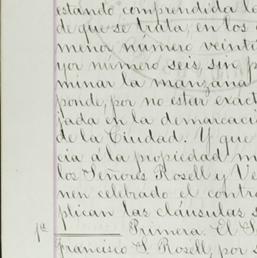 estando comprendida la
de que se trata, en los
menor número veinti
yor número seis, sin p
minar la manzana
ponde, por no estar exact
jada en la demarcaci
de la Ciudad. Y que
cia á la propiedad m
los Señores Rosell y Ve
nen celebrado el contra
plican las cláusulas s
1ª Primera. El S
Francisco L. Rosell, por s